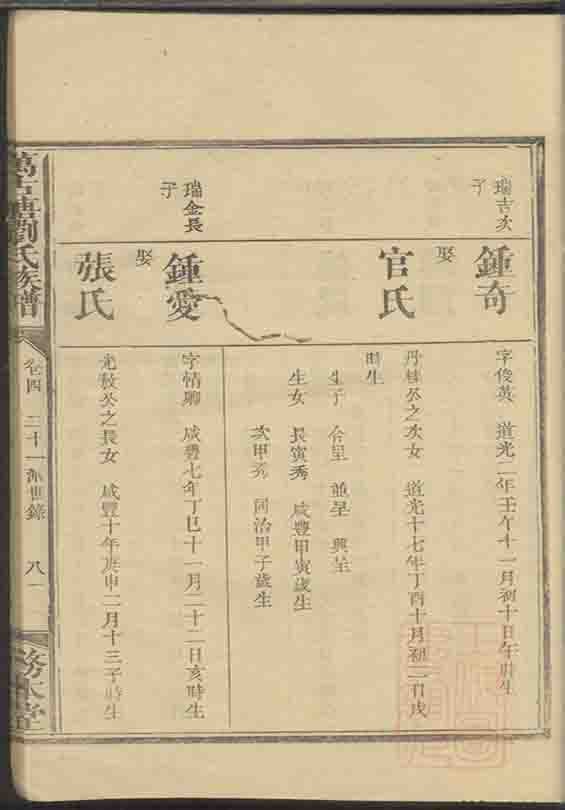 瑞吉次
子
鍾奇
字俊英 道光二年壬午十一月初十日午時生
娶
官氏
丹桂公之次女 道光十七年丁酉十月初二日戌
時生
生子 合呈 並呈 興呈
生女 長寅秀 咸豐甲寅歲生
次甲秀 同治甲子歲生
瑞金長
子
鍾愛
字情卿 咸豐七年丁巳十一月二十二日亥時生
娶
張氏
光敖公之長女 咸豐十年庚申二月十三子時生
劉氏族譜
卷四 二十一派世錄 八一
務本堂